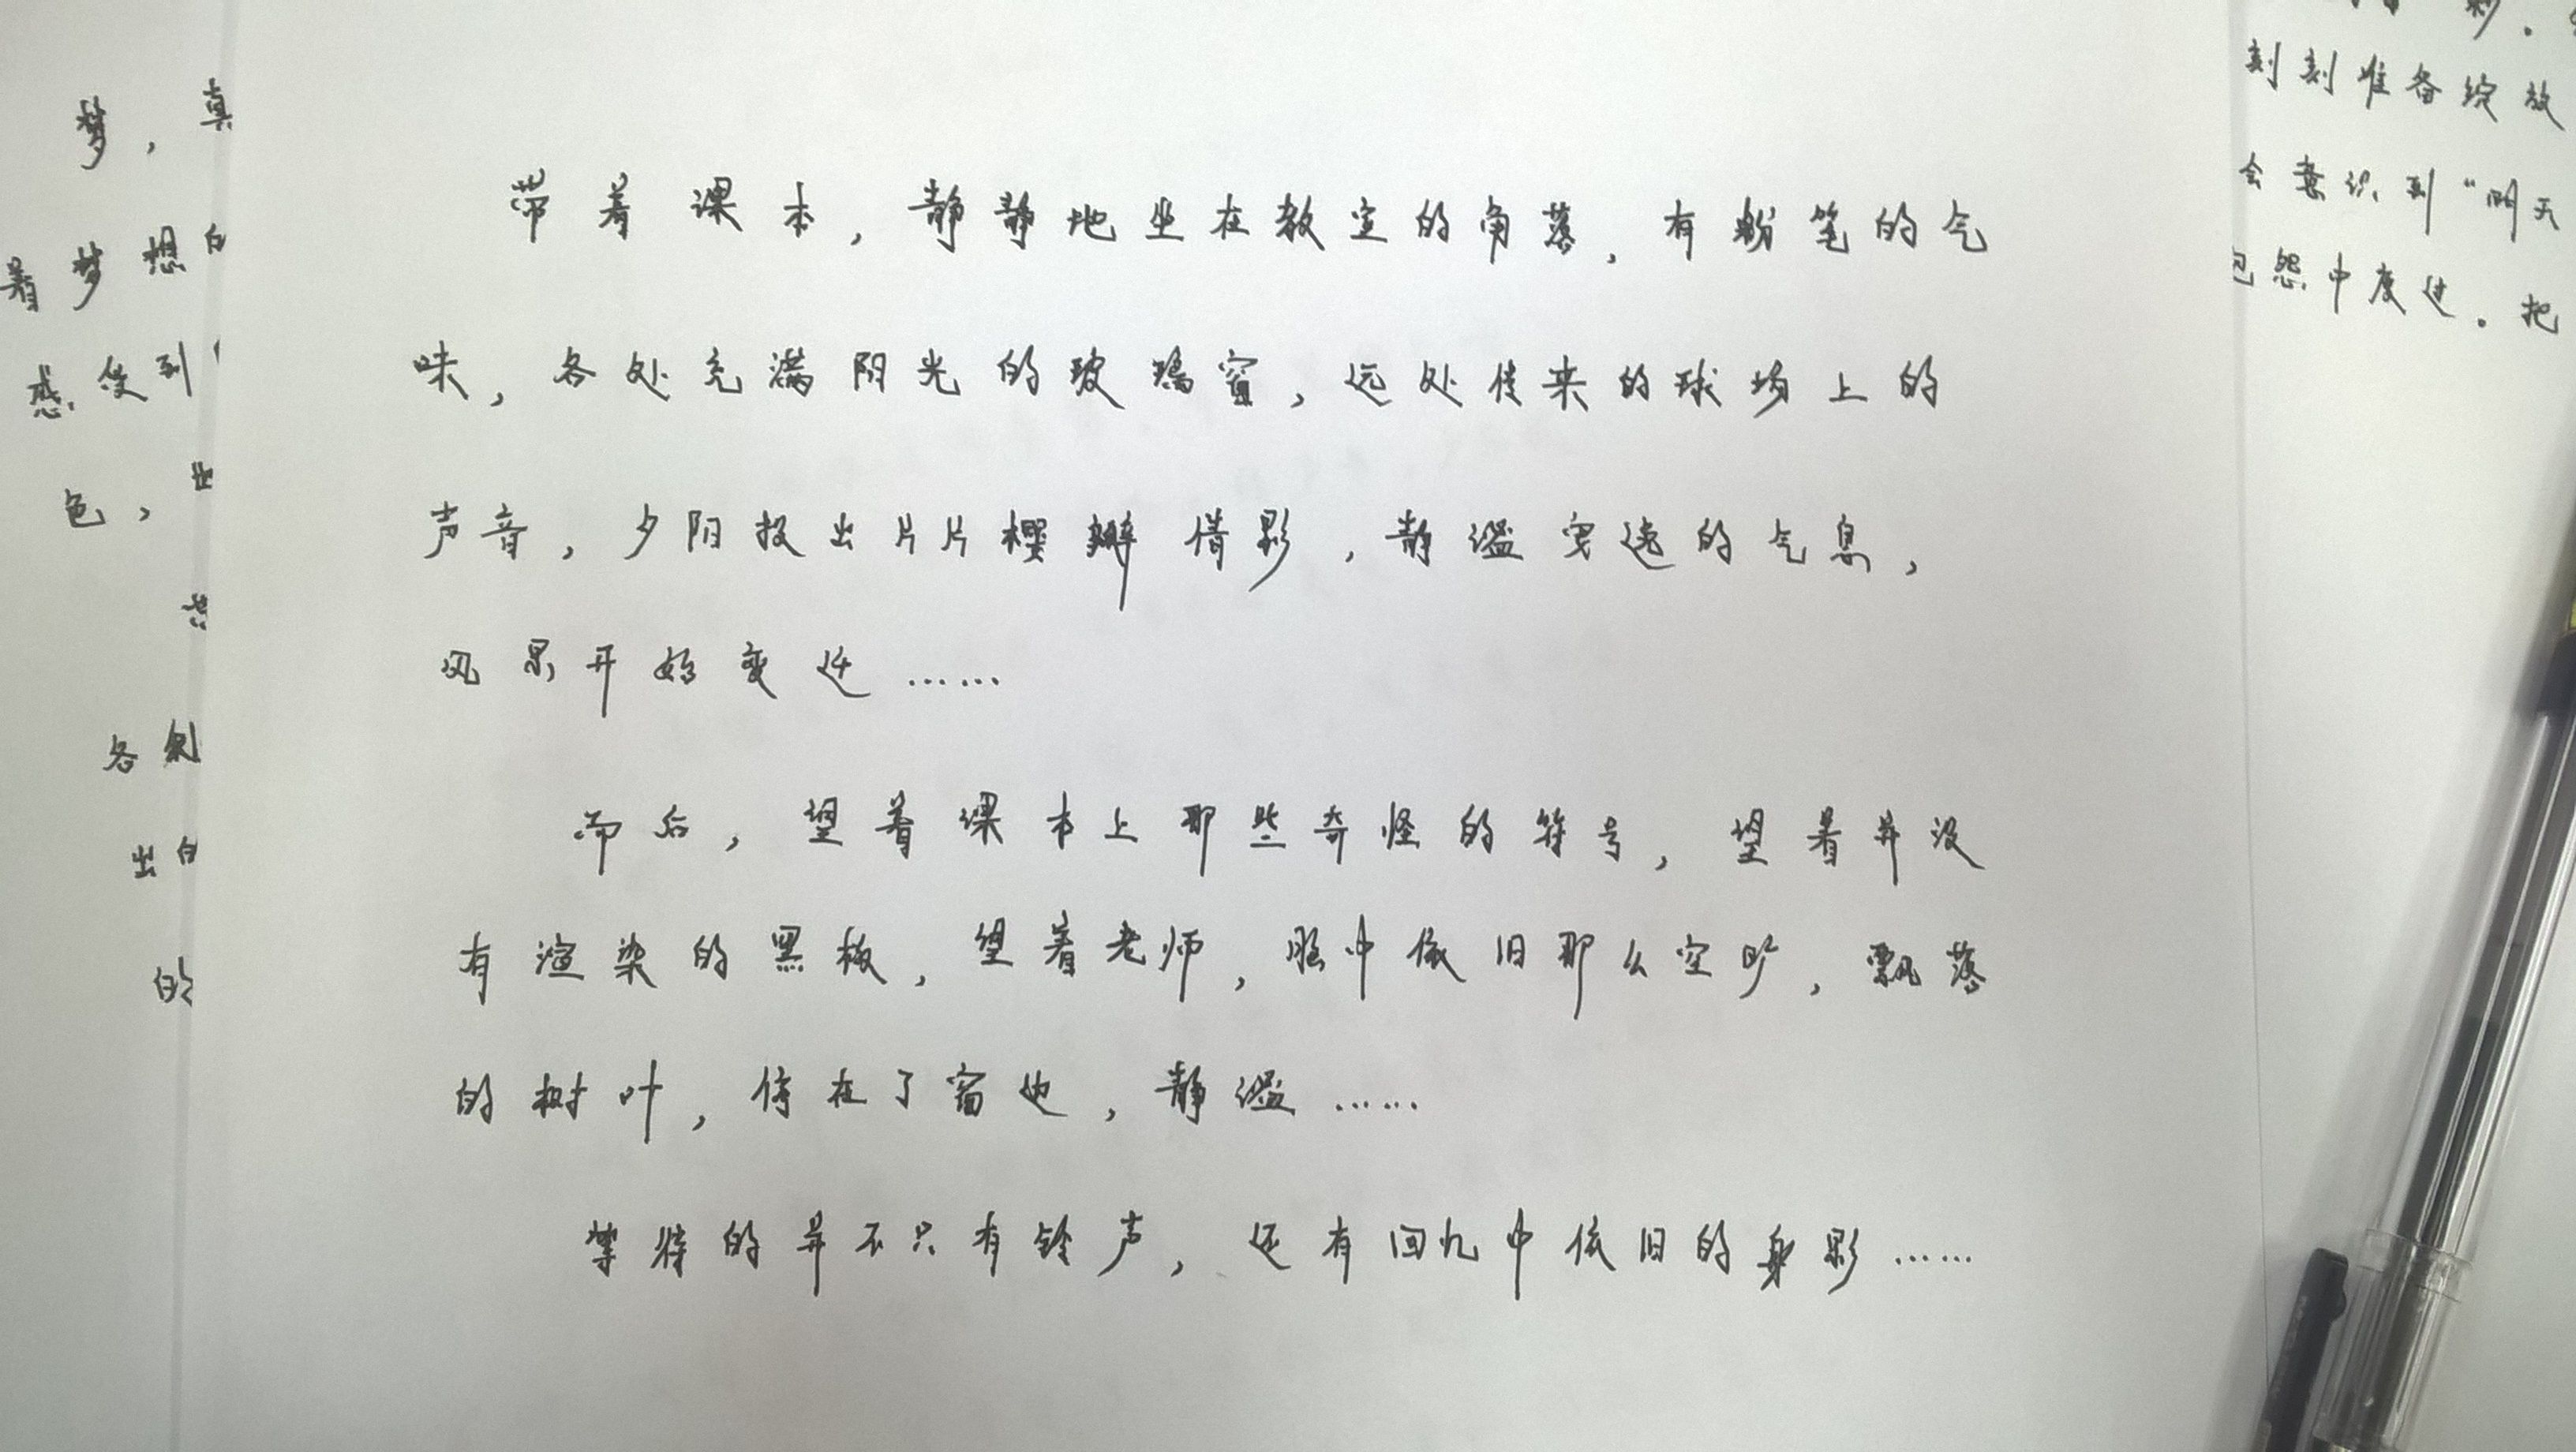 梦，真
着梦想的
感受到
色，
各
出的
的
带着课本，静静地坐在教室的角落，有粉笔的气
味，各处充满阳光的玻璃窗，远处传来的球场上的
声音，夕阳投出片片樱瓣倩影，静谧安逸的气息，
风景开始变迁……
而后，望着课本上那些奇怪的符号，望着并没
有渲染的黑板，望着老师，脑中依旧那么空旷，飘落
的树叶，停在了窗边，静谧……
等待的并不只有铃声，还有回忆中依旧的身影……
刻刻准备绽放
会意识到“明天
怨中度过。把